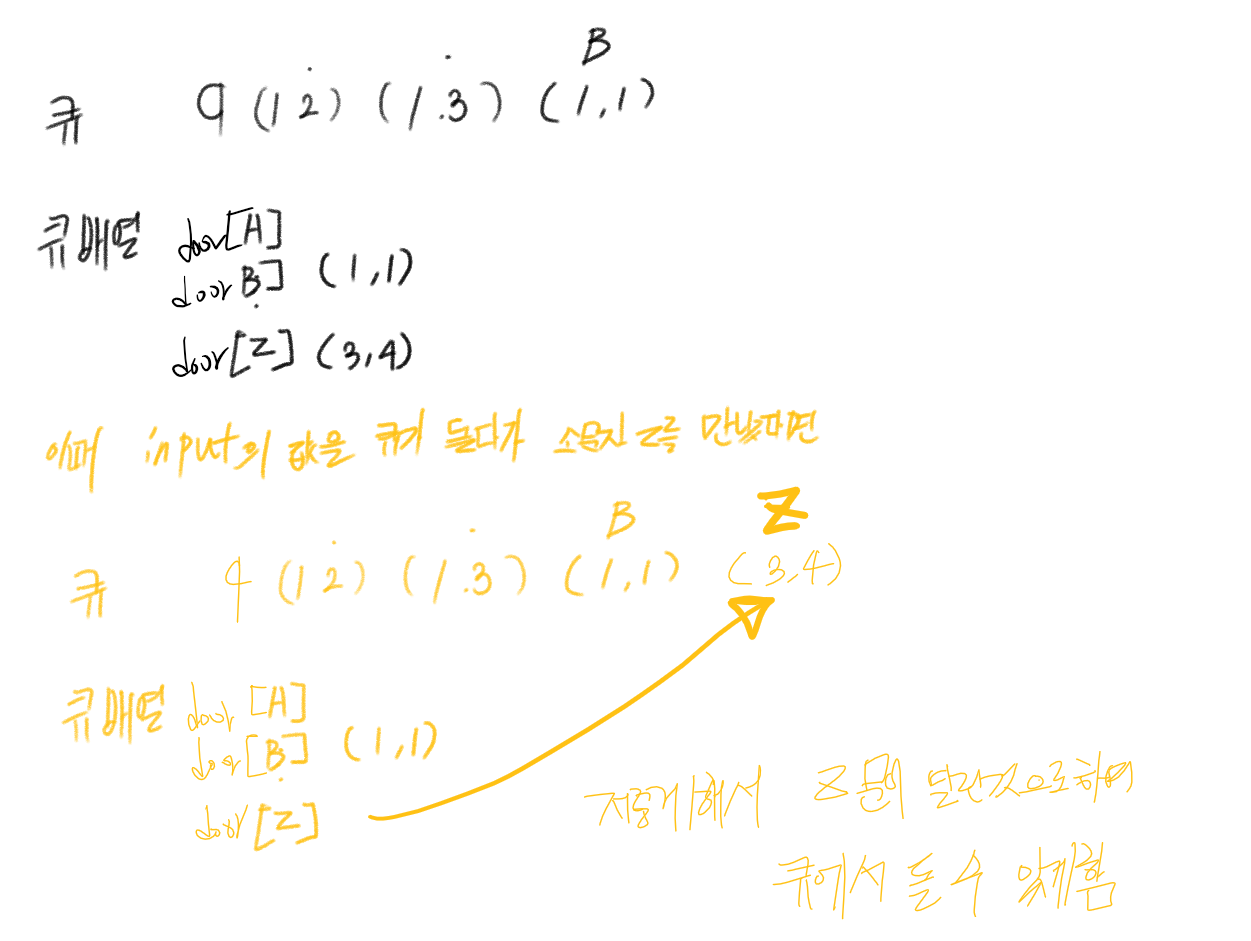 B
큐 q (1 2) (1.3) (1,1)
큐배열 door[A]
door B] (1,1)
door[Z] (3,4)
이때 input의 값을 큐가 돌다가 소문자 z를 만났다면
B Z
큐 q (1 2) (1.3) (1,1) (3,4)
큐배열 door [A]
door[B] (1,1)
door[Z]
저렇게해서 Z문이 열린것으로하여
큐에서 돌 수 있게함